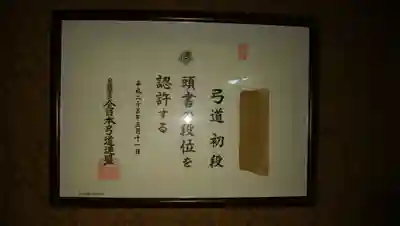 弓道 初段
頭書の段位を
認許する
平成二十五年五月十一日
全日本弓道連盟